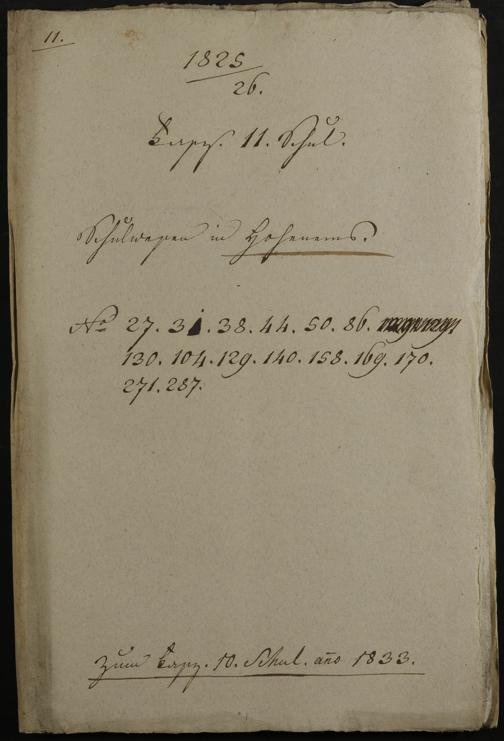 11.
1825
26.
Fasz. 11. Schul.
Schulwesen in Hohenems.
No 27. 31. 38. 44. 50. 86.
130. 104. 129. 140. 158. 169. 170.
271. 287.
zum Fasz. 10. Schul. año 1833.